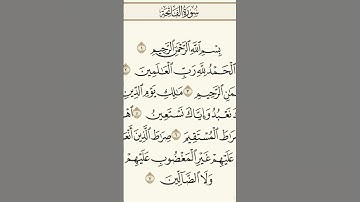 سُورَةُ الفَاتِحَةِ
بِسْمِ ٱللَّهِ ٱلرَّحْمَٰنِ ٱلرَّحِيمِ ١
ٱلْحَمْدُ لِلَّهِ رَبِّ ٱلْعَٰلَمِينَ
ٱلرَّحِيمِ ٣ مَٰلِكِ يَوْمِ ٱلدِّينِ
نَعْبُدُ وَإِيَّاكَ نَسْتَعِينُ ٥
ٱلْمُسْتَقِيمَ ٦ صِرَٰطَ ٱلَّذِينَ
عَلَيْهِمْ غَيْرِ ٱلْمَغْضُوبِ عَلَيْهِمْ
وَلَا ٱلضَّآلِّينَ ٧